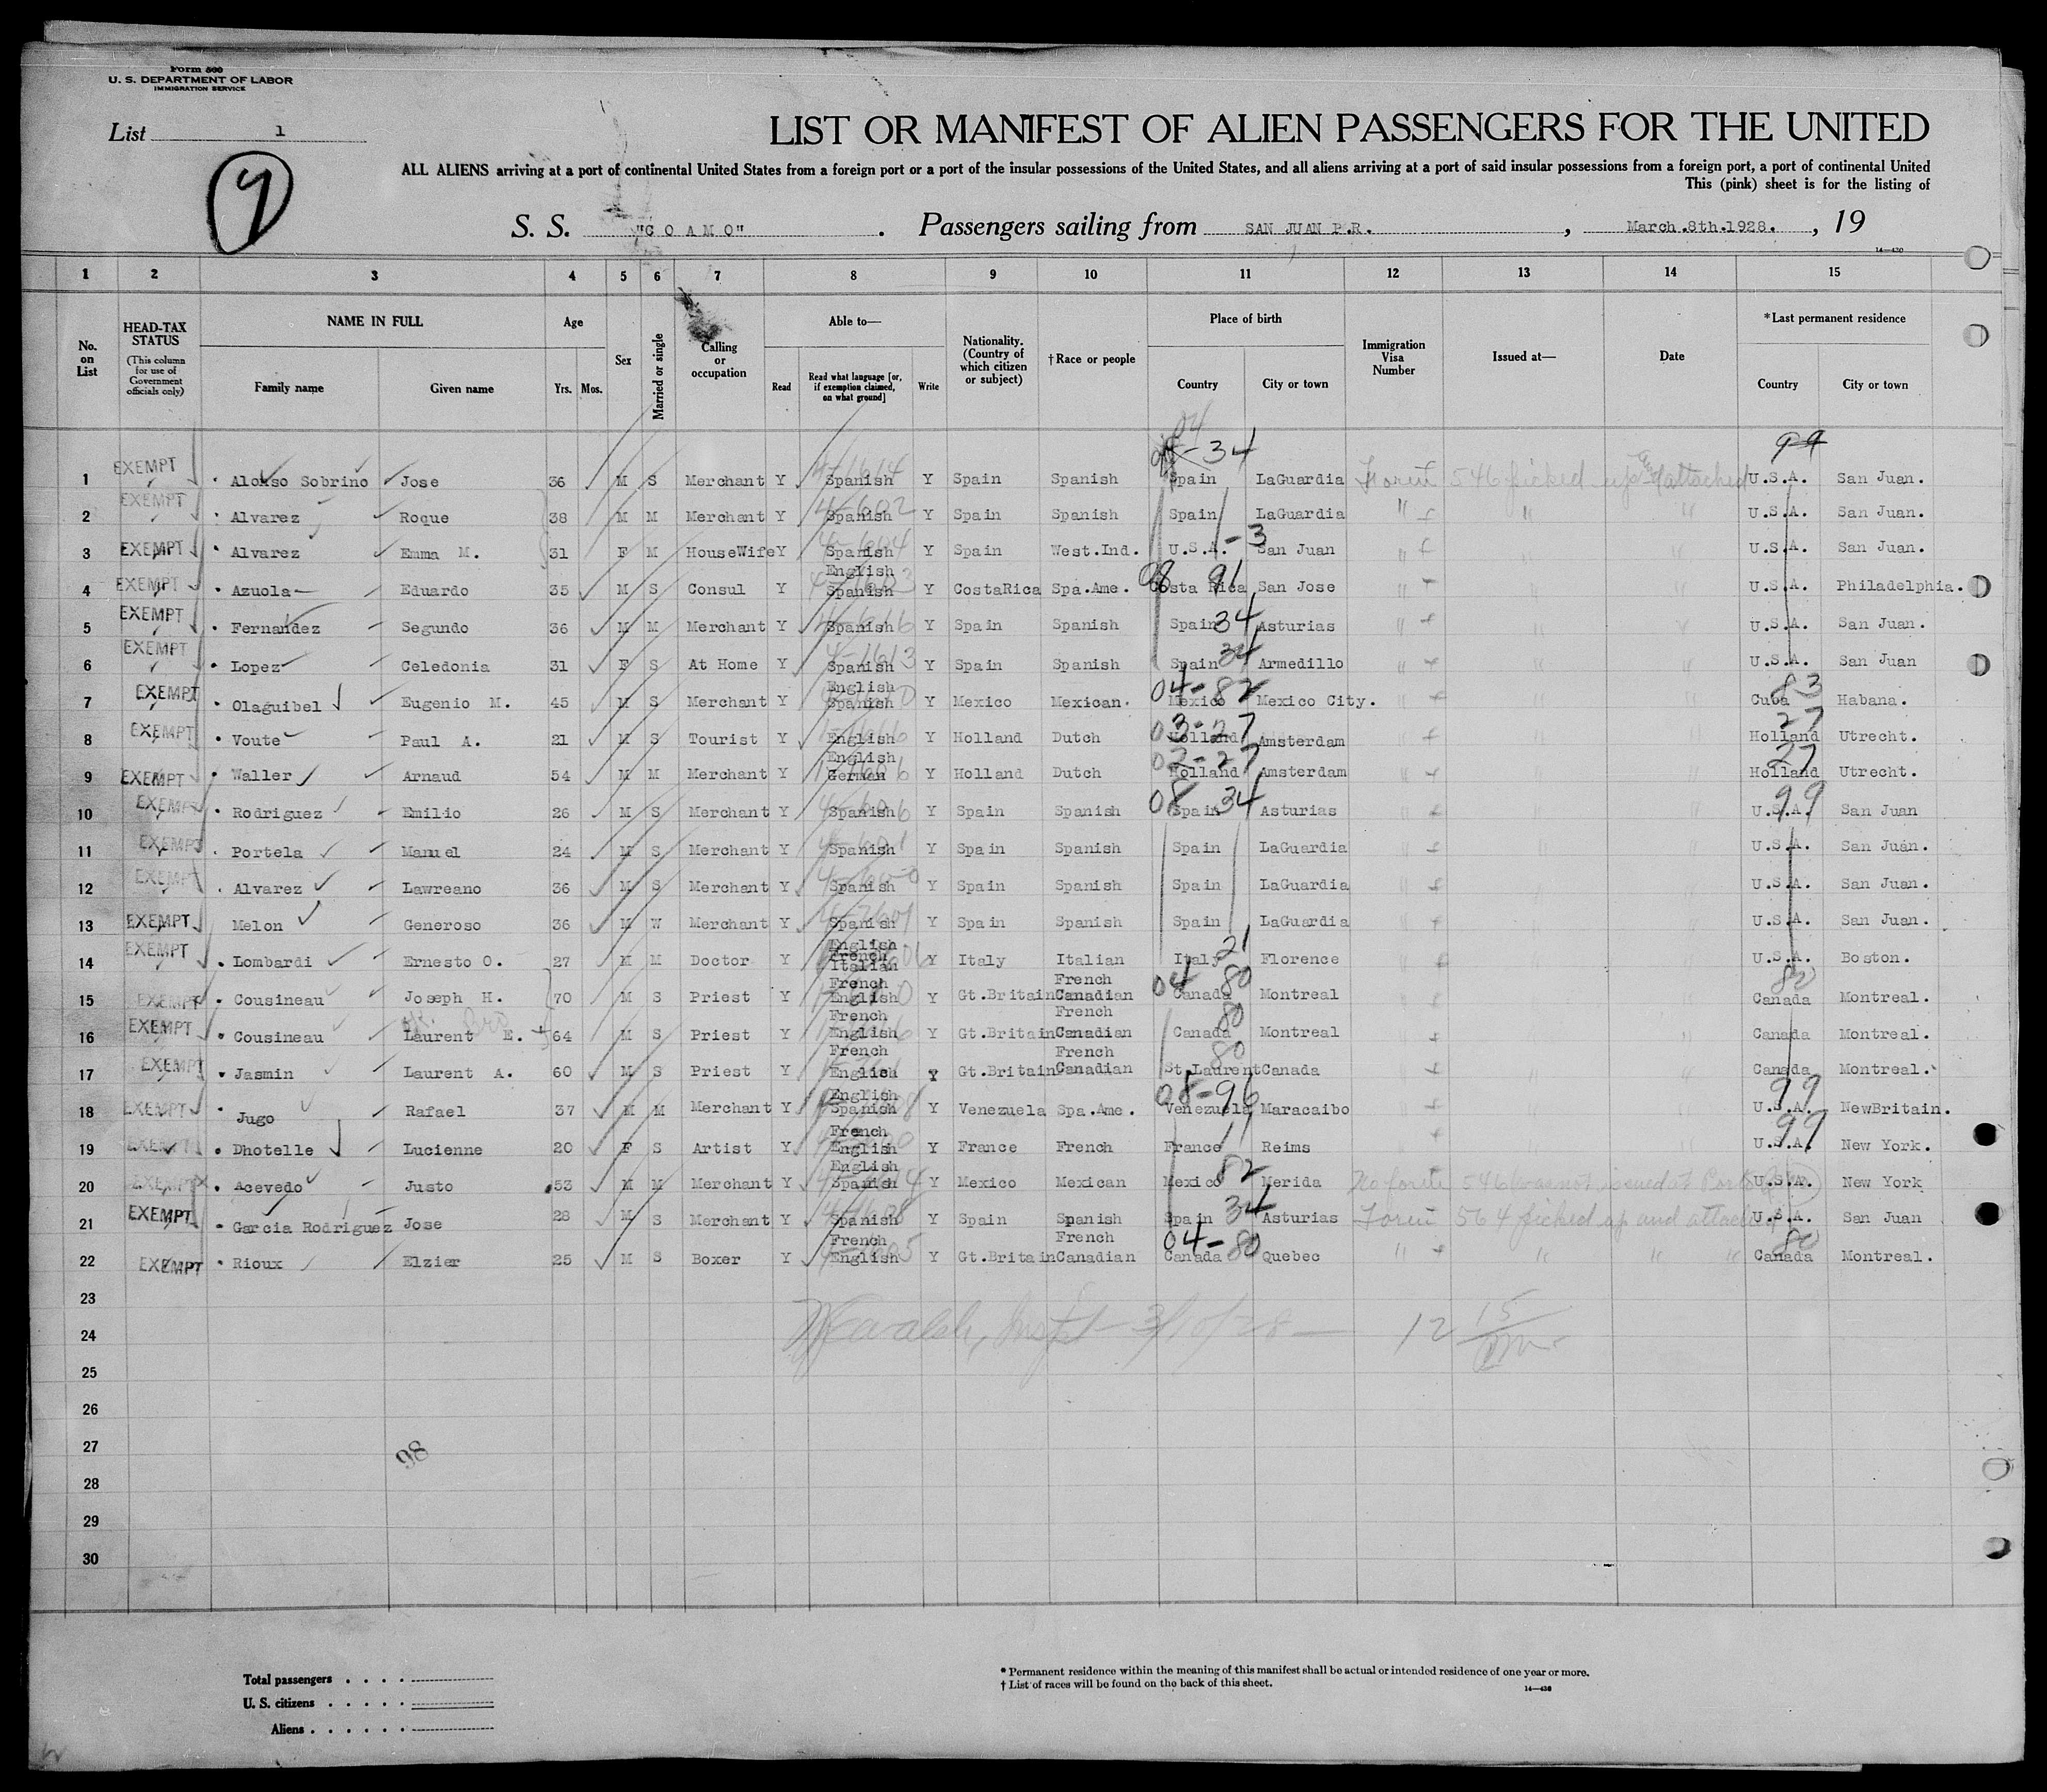 Form 500
U. S. DEPARTMENT OF LABOR
IMMIGRATION SERVICE
List 1
9
LIST OR MANIFEST OF ALIEN PASSENGERS FOR THE UNITED
ALL ALIENS arriving at a port of continental United States from a foreign port or a port of the insular possessions of the United States, and all aliens arriving at a port of said insular possessions from a foreign port, a port of continental United
This (pink) sheet is for the listing of
S. S. "C O A M O". Passengers sailing from SAN JUAN P.R., March.8th.1928., 19
14—430
1 2 3 4 5 6 7 8 9 10 11 12 13 14 15
No. on List HEAD-TAX STATUS (This column for use of Government officials only) NAME IN FULL Family name Given name Age Yrs. Mos. Sex Married or single Calling or occupation Able to— Read Read what language [or, if exemption claimed, on what ground] Write Nationality. (Country of which citizen or subject) †Race or people Place of birth Country City or town Immigration Visa Number Issued at— Date *Last permanent residence Country City or town
04
-34 99
1 EXEMPT Alonso Sobrino Jose 36 M S Merchant Y Spanish Y Spain Spanish Spain LaGuardia Form 546 picked up & attached U.S.A. San Juan.
2 EXEMPT Alvarez Roque 38 M M Merchant Y Spanish Y Spain Spanish Spain LaGuardia " " " U.S.A. San Juan.
3 EXEMPT Alvarez Emma M. 31 F M HouseWife Y Spanish Y Spain West.Ind. U.S.A. -3 San Juan " U.S.A. San Juan.
4 EXEMPT Azuola Eduardo 35 M S Consul Y English Spanish Y CostaRica Spa.Ame. 08 91 Costa Rica San Jose " U.S.A. Philadelphia.
5 EXEMPT Fernandez Segundo 36 M M Merchant Y Spanish Y Spain Spanish Spain 34 Asturias " U.S.A. San Juan.
6 EXEMPT Lopez Celedonia 31 F S At Home Y Spanish Y Spain Spanish Spain 34 Armedillo " U.S.A. San Juan
7 EXEMPT Olaguibel Eugenio M. 45 M S Merchant Y English Spanish Y Mexico Mexican. 04-82 Mexico Mexico City. " 83 Cuba Habana.
8 EXEMPT Voute Paul A. 21 M S Tourist Y English Y Holland Dutch 03-27 Holland Amsterdam " 27 Holland Utrecht.
9 EXEMPT Waller Arnaud 54 M M Merchant Y English German Y Holland Dutch 02-27 Holland Amsterdam " 27 Holland Utrecht.
10 EXEMPT Rodriguez Emilio 26 M S Merchant Y Spanish Y Spain Spanish 08 34 Spain Asturias " 99 U.S.A. San Juan
11 EXEMPT Portela Manuel 24 M S Merchant Y Spanish Y Spain Spanish Spain LaGuardia " U.S.A. San Juan.
12 EXEMPT Alvarez Lawreano 36 M S Merchant Y Spanish Y Spain Spanish Spain LaGuardia " U.S.A. San Juan.
13 EXEMPT Melon Generoso 36 M W Merchant Y Spanish Y Spain Spanish Spain LaGuardia " U.S.A. San Juan.
14 EXEMPT Lombardi Ernesto O. 27 M M Doctor Y English French Italian Y Italy Italian Italy 21 Florence " U.S.A. Boston.
15 EXEMPT Cousineau Joseph H. 70 M S Priest Y French English Y Gt.Britain French Canadian 04 80 Canada Montreal " 80 Canada Montreal.
16 EXEMPT Cousineau Laurent E. 64 M S Priest Y French English Y Gt.Britain French Canadian 80 Canada Montreal " Canada Montreal.
17 EXEMPT Jasmin Laurent A. 60 M S Priest Y French English Y Gt.Britain French Canadian 80 St.Laurent Canada " Canada Montreal.
18 EXEMPT Jugo Rafael 37 M M Merchant Y English Spanish Y Venezuela Spa.Ame. 08-96 Venezuela Maracaibo " 99 U.S.A. NewBritain.
19 EXEMPT Dhotelle Lucienne 20 F S Artist Y French English Y France French France 11 Reims " 99 U.S.A. New York.
20 EXEMPT Acevedo Justo 53 M M Merchant Y English Spanish Y Mexico Mexican 82 Mexico Merida No form 546 was not issued at U.S.A. New York
21 EXEMPT Garcia Rodriguez Jose 28 M S Merchant Y Spanish Y Spain Spanish Spain 34 Asturias Form 564 picked up and attached U.S.A. San Juan
22 EXEMPT Rioux Elzier 25 M S Boxer Y French English Y Gt.Britain French Canadian 04-80 Canada Quebec " " " " 80 Canada Montreal.
23
24 3/10/28 — 12 15
25
26
27
98
28
29
30
Total passengers
U. S. citizens
Aliens
* Permanent residence within the meaning of this manifest shall be actual or intended residence of one year or more.
† List of races will be found on the back of this sheet.
14—430